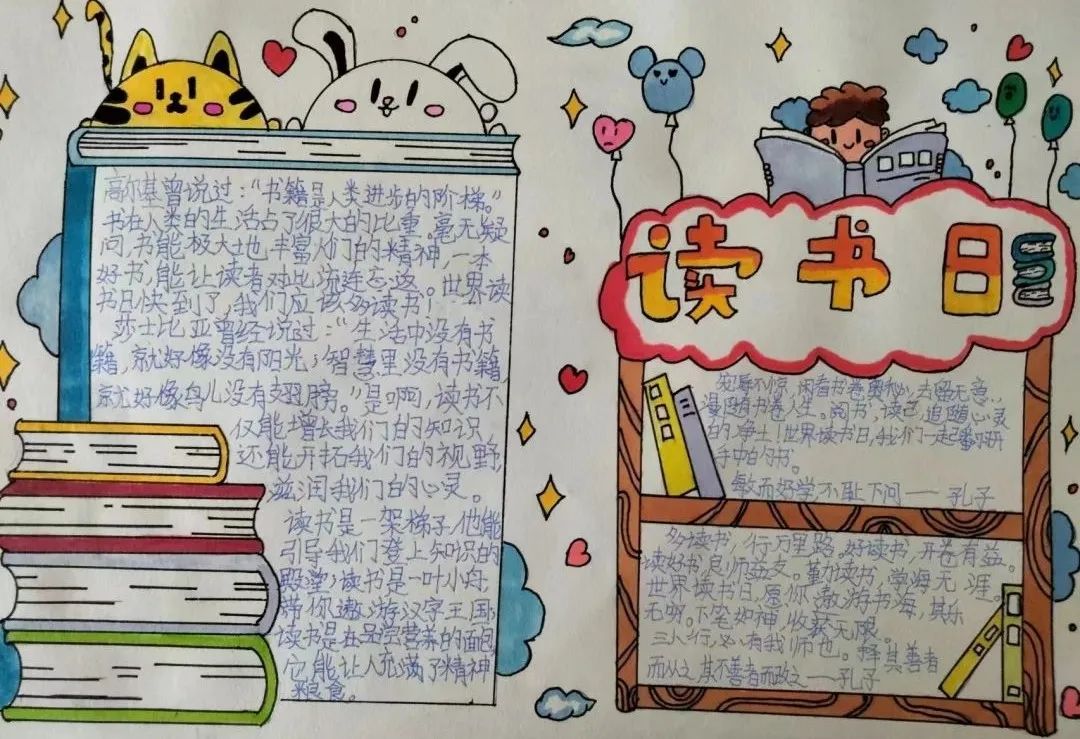 高尔基曾说过：“书籍是人类进步的阶梯。”
书在人类的生活占了很大的比重。毫无疑
问，书能极大地丰富人们的精神，一本
好书，能让读者对此流连忘返。世界读
书日快到了，我们应该多读书！
莎士比亚曾经说过：“生活中没有书
籍，就好像没有阳光；智慧里没有书籍，
就好像鸟儿没有翅膀。”是啊，读书不
仅能增长我们的知识
还能开拓我们的视野，
滋润我们的心灵。
读书是一架梯子，他能
引导我们登上知识的
殿堂；读书是一叶小舟
带你遨游汉字王国；
读书是在品尝营养的面包
它能让人充满了精神
粮食。
读书日
宠辱不惊，闲看书卷奥秘，去留无意，
漫随书卷人生。阅书，读己，追随心灵
的净土！世界读书日，我们一起翻开
手中的书。
敏而好学不耻下问——孔子
多读书，行万里路。好读书，开卷有益。
读好书，良师益友。勤读书，学海无涯。
世界读书日，愿你遨游书海，其乐
无穷。下笔如神，收获无限。
三人行，必有我师也。择其善者
而从之其不善者而改之——孔子